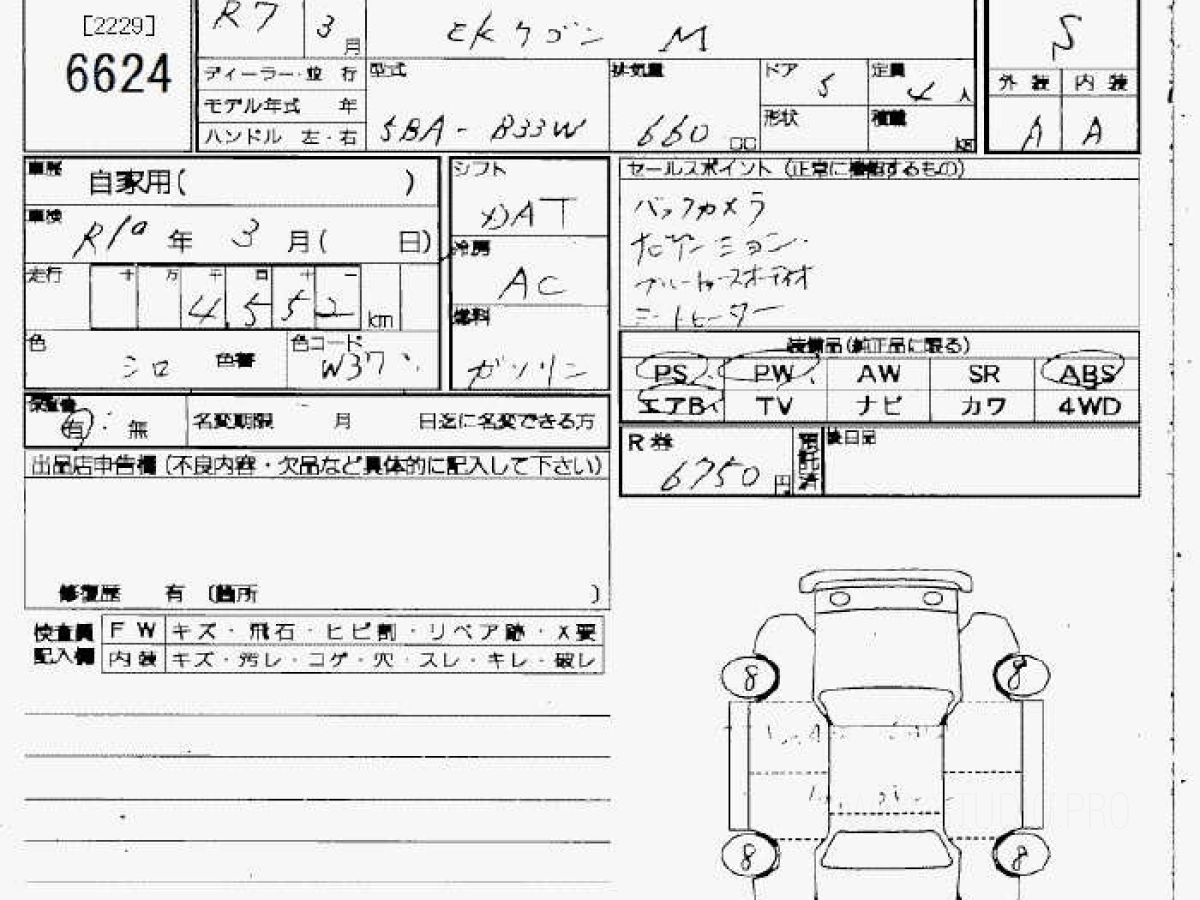 [2229]
6624
R7 3月
ディーラー・並 行
モデル年式 年
ハンドル 左・右
ekワゴン M
型式 5BA-B33W
排気量 660 cc
ドア 5
定員 4人
形状
積載 kg
S
外 装 内 装
A A
車歴 自家用( )
車検 R10年 3月( 日)
走行 十 万 千 百 十 一
4,552 km
色 シロ 色替
色コード W37
シフト
DAT
冷房
AC
燃料
ガソリン
セールスポイント (正常に機能するもの)
バックカメラ
ブルートゥースオーディオ
シートヒーター
装備品(純正品に限る)
PS PW AW SR ABS
エアB TV ナビ カワ 4WD
保証書
有 : 無
名変期限 月 日迄に名変できる方
R券 6750円
預託済
後日品
出品店申告欄 (不良内容・欠品など具体的に記入して下さい)
修復歴 有 〔箇所 〕
検査員記入欄
FW キズ・飛石・ヒビ割・リペア跡・X要
内装 キズ・汚レ・コゲ・穴・スレ・キレ・破レ
8 8
8 8